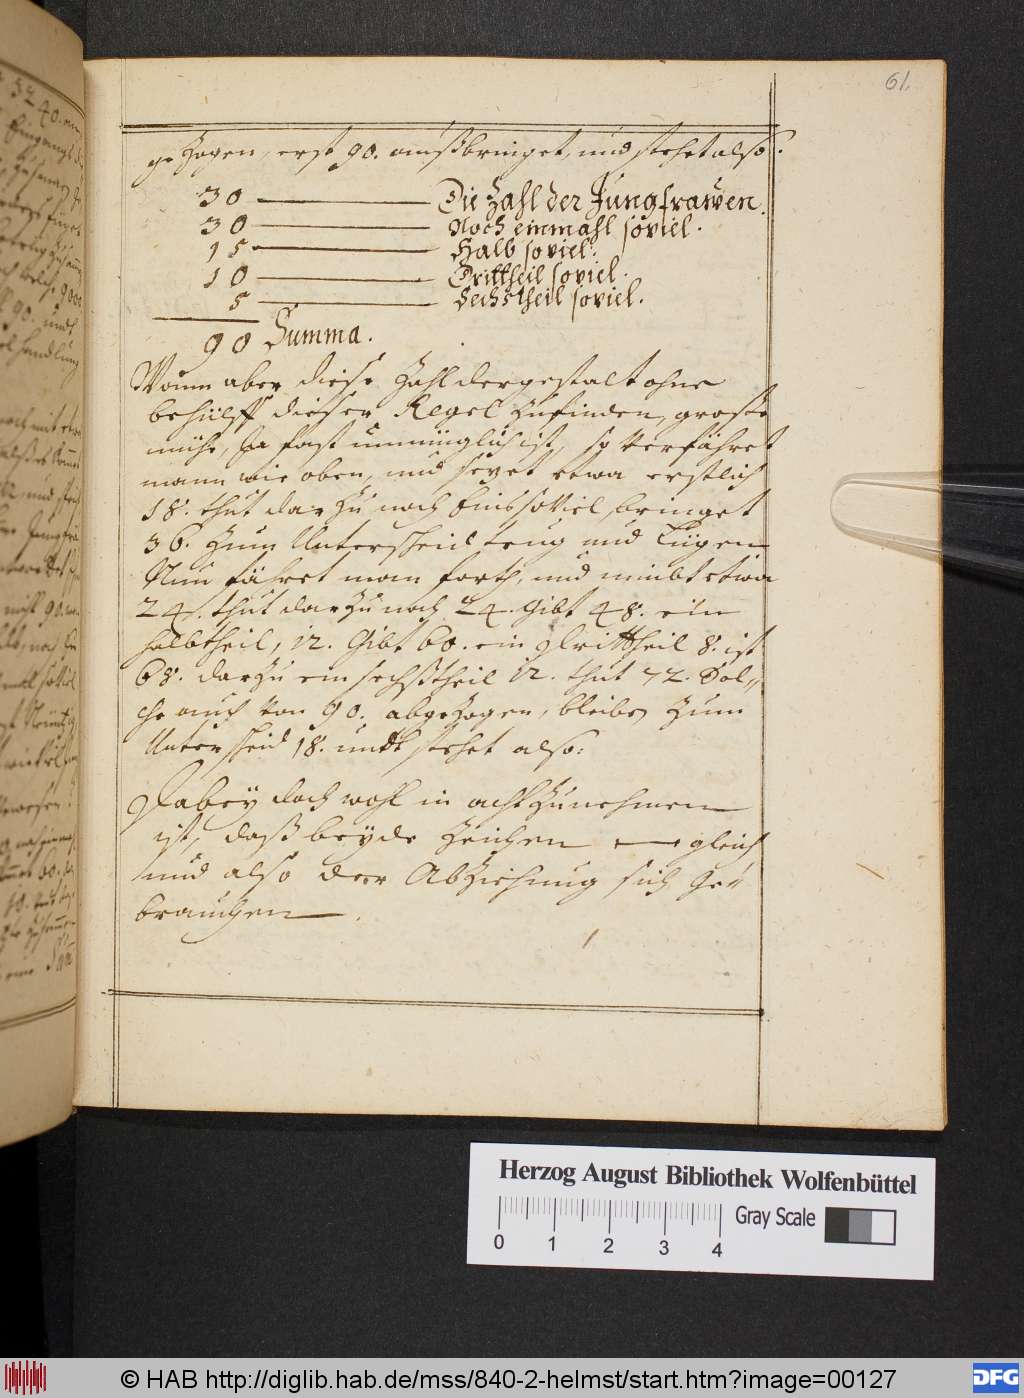 61.
gezogen, erst 90. außbringet, und stehet also:
30 — Die Zahl der Jungfrawen.
30 — Noch einmahl soviel.
15 — Halb soviel.
10 — Drittheil soviel.
5 — Sechstheil soviel.
90 Summa.
Wann aber diese Zahl dergestalt ohne
behülff dieser Regel zufinden, große
mühe, Ja fast unmüglich ist, so verfähret
mann wie oben, und sezet etwa erstlich
18. thut darzu noch einssoviel, bringet
36. zum Unterscheid trug und Lügen
Nun fähret man forth, und nimbt etwa
24. thut darzu noch 24. Gibt 48. ein
halbtheil, 12. Gibt 60. ein Dritttheil 8. ist
68. darzu ein sechßtheil 12. thut 72. Sol-
che auch von 90. abgezogen, bleiben zum
Unterscheid 18. undt stehet also:
Dabey doch wohl in acht zunehmen
ist, daß beyde Zeichen — gleich
und also der Abziehung sich Ge-
brauchen.
Herzog August Bibliothek Wolfenbüttel
Gray Scale
0 1 2 3 4
© HAB http://diglib.hab.de/mss/840-2-helmst/start.htm?image=00127
DFG